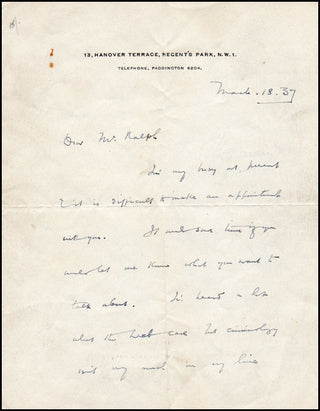 13, HANOVER TERRACE, REGENT'S PARK, N.W.1.
TELEPHONE, PADDINGTON 6204.
March. 18. 37
Dear Mr. Ralph
I'm very busy at present
& it is difficult to make an appointment
with you. It would save time if you
would let me know what you want to
talk about. I'm a
about the case but criminology
isn't very much in my line